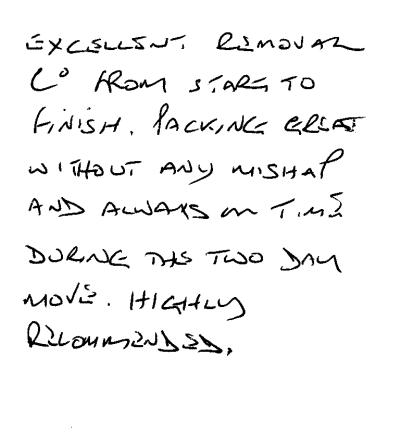 EXCELLENT REMOVAL
Co FROM START TO
FINISH. PACKING GREAT
WITHOUT ANY MISHAP
AND ALWAYS ON TIME
DURING THIS TWO DAY
MOVE. HIGHLY
RECOMMENDED.